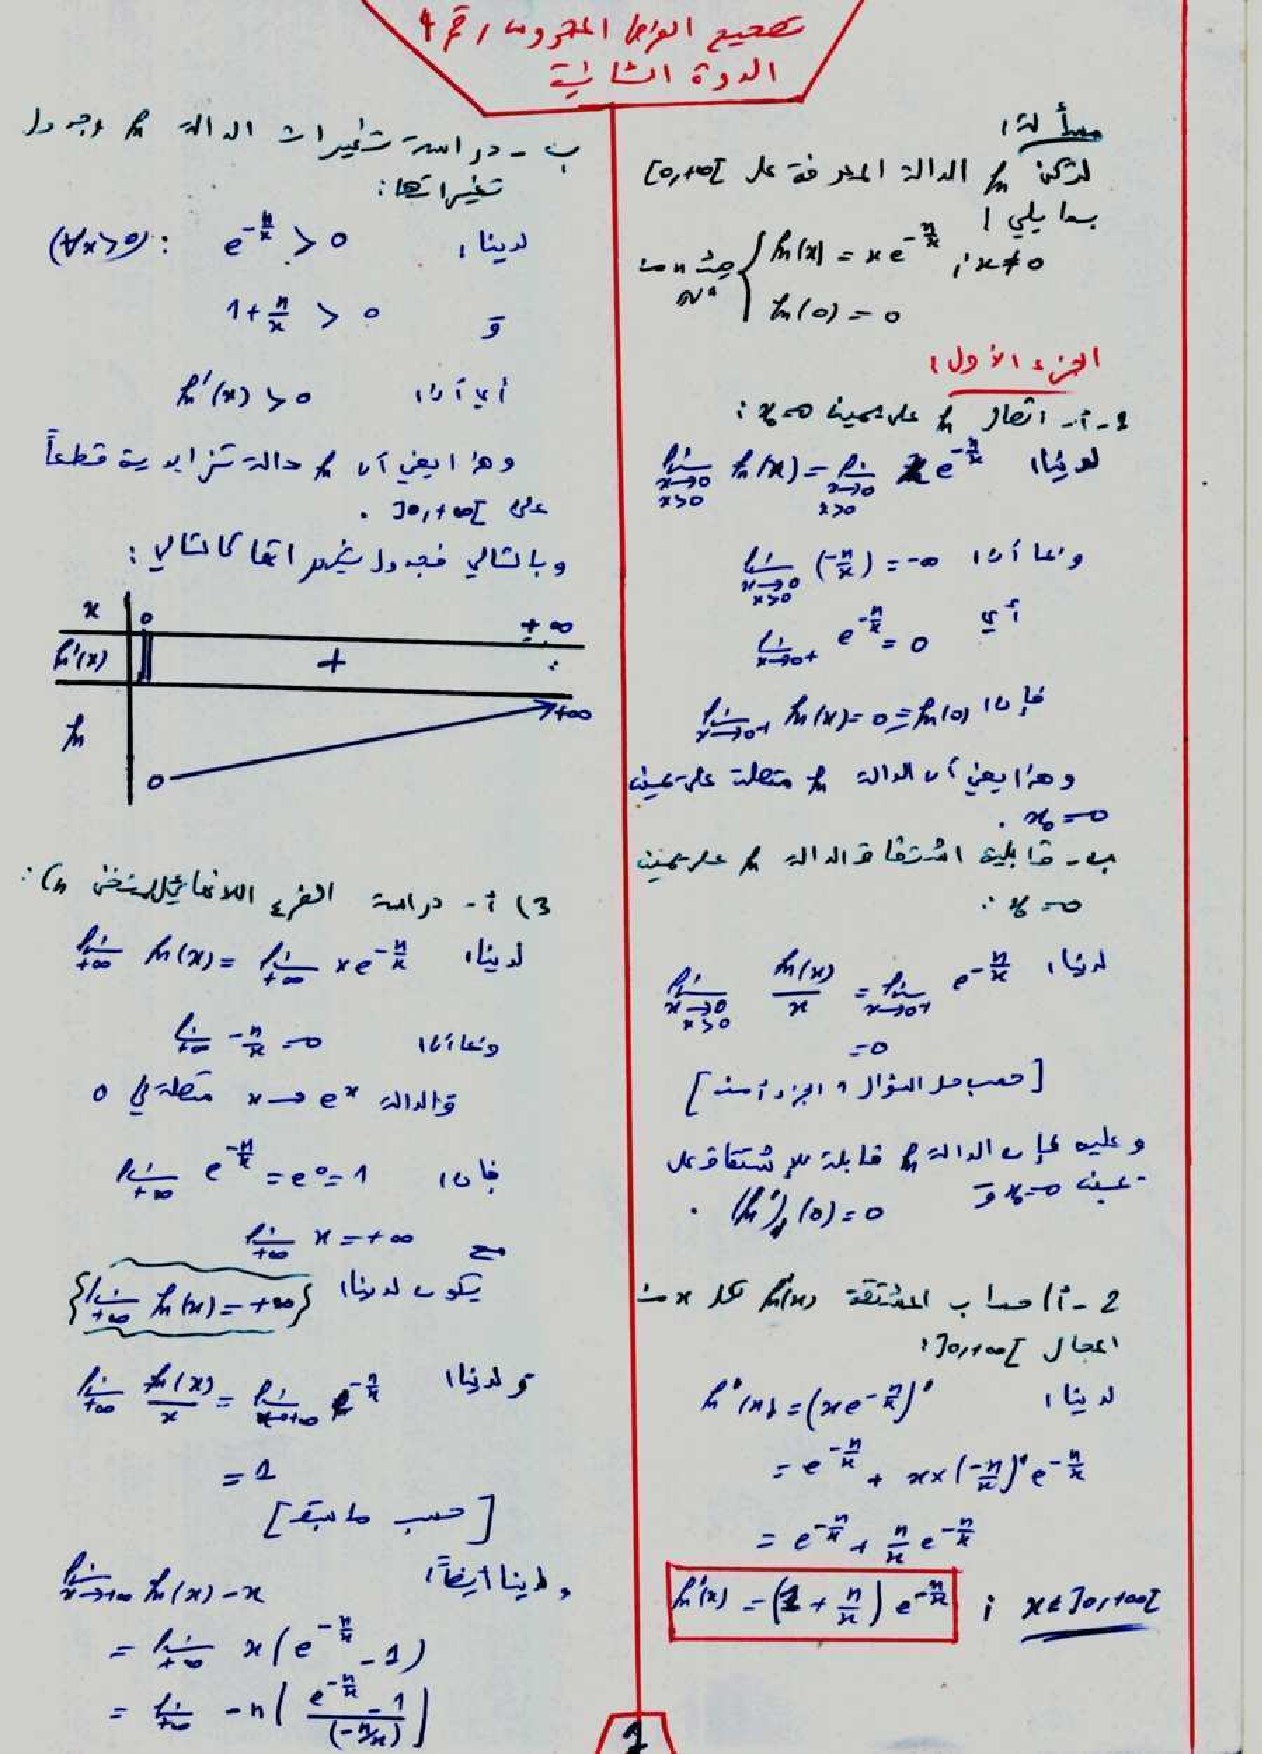 تصحيح الفرض المحروس رقم 1
الدورة الثانية
مسألة :
لتكن fn الدالة المعرفة على [0,+∞[
بما يلي :
{ fn(x) = x e^{-n/x} ; x≠0
fn(0) = 0
حيث n من ℕ*
الجزء الأول :
1-أ- اتصال fn على يمين x₀=0 :
لدينا : lim_{x→0, x>0} fn(x) = lim_{x→0, x>0} x e^{-n/x}
وبما أن : lim_{x→0, x>0} (-n/x) = -∞
أي lim_{x→0+} e^{-n/x} = 0
فإن : lim_{x→0+} fn(x) = 0 = fn(0)
وهذا يعني أن الدالة fn متصلة على يمين
x₀=0 .
ب- قابلية اشتقاق الدالة fn على يمين
x₀=0 :
لدينا : lim_{x→0, x>0} fn(x)/x = lim_{x→0+} e^{-n/x}
=0
[حسب حل السؤال 1 الجزء أ منه]
وعليه فإن الدالة fn قابلة للإشتقاق على
يمين x₀=0 و (fn')d (0) = 0 .
2-أ/ حساب المشتقة fn'(x) لكل x من
المجال ]0,+∞[ :
لدينا : fn'(x) = (x e^{-n/x})'
= e^{-n/x} + x×(-n/x)' e^{-n/x}
= e^{-n/x} + n/x e^{-n/x}
fn'(x) = (1 + n/x) e^{-n/x} ; x∈]0,+∞[
ب- دراسة تغيرات الدالة fn وجدول
تغيراتها :
لدينا : e^{-n/x} > 0 : (∀x>0)
و 1+n/x > 0
أي أن : fn'(x) > 0
وهذا يعني أن fn دالة تزايدية قطعاً
على ]0,+∞[ .
وبالتالي فجدول تغيراتها كالتالي :
x 0 +∞
fn'(x) +
fn 0 +∞
3) أ- دراسة الفرع اللانهائي للمنحنى (Cn) :
لدينا : lim_{+∞} fn(x) = lim_{+∞} x e^{-n/x}
وبما أن : lim_{+∞} -n/x = 0
والدالة x→e^x متصلة في 0
فإن : lim_{+∞} e^{-n/x} = e^0 = 1
مع lim_{+∞} x = +∞
يكون لدينا : {lim_{+∞} fn(x) = +∞}
ولدينا : lim_{+∞} fn(x)/x = lim_{x→+∞} e^{-n/x}
= 1
[حسب ما سبق]
ولدينا أيضاً : lim_{x→+∞} fn(x) - x
= lim_{+∞} x(e^{-n/x} - 1)
= lim_{+∞} -n( (e^{-n/x} - 1)/(-n/x) )
1